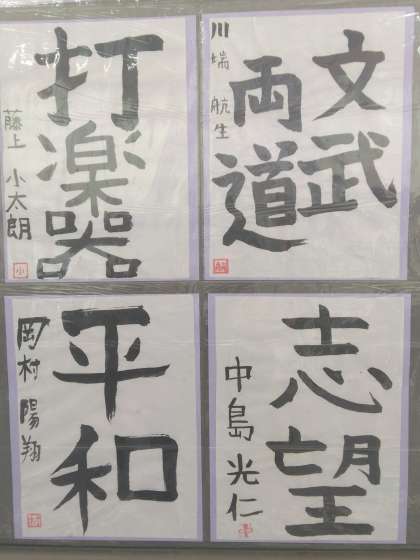 文武
両道
川端 航生
打楽器
藤上 小太朗
志望
中島 光仁
平和
岡村 陽翔